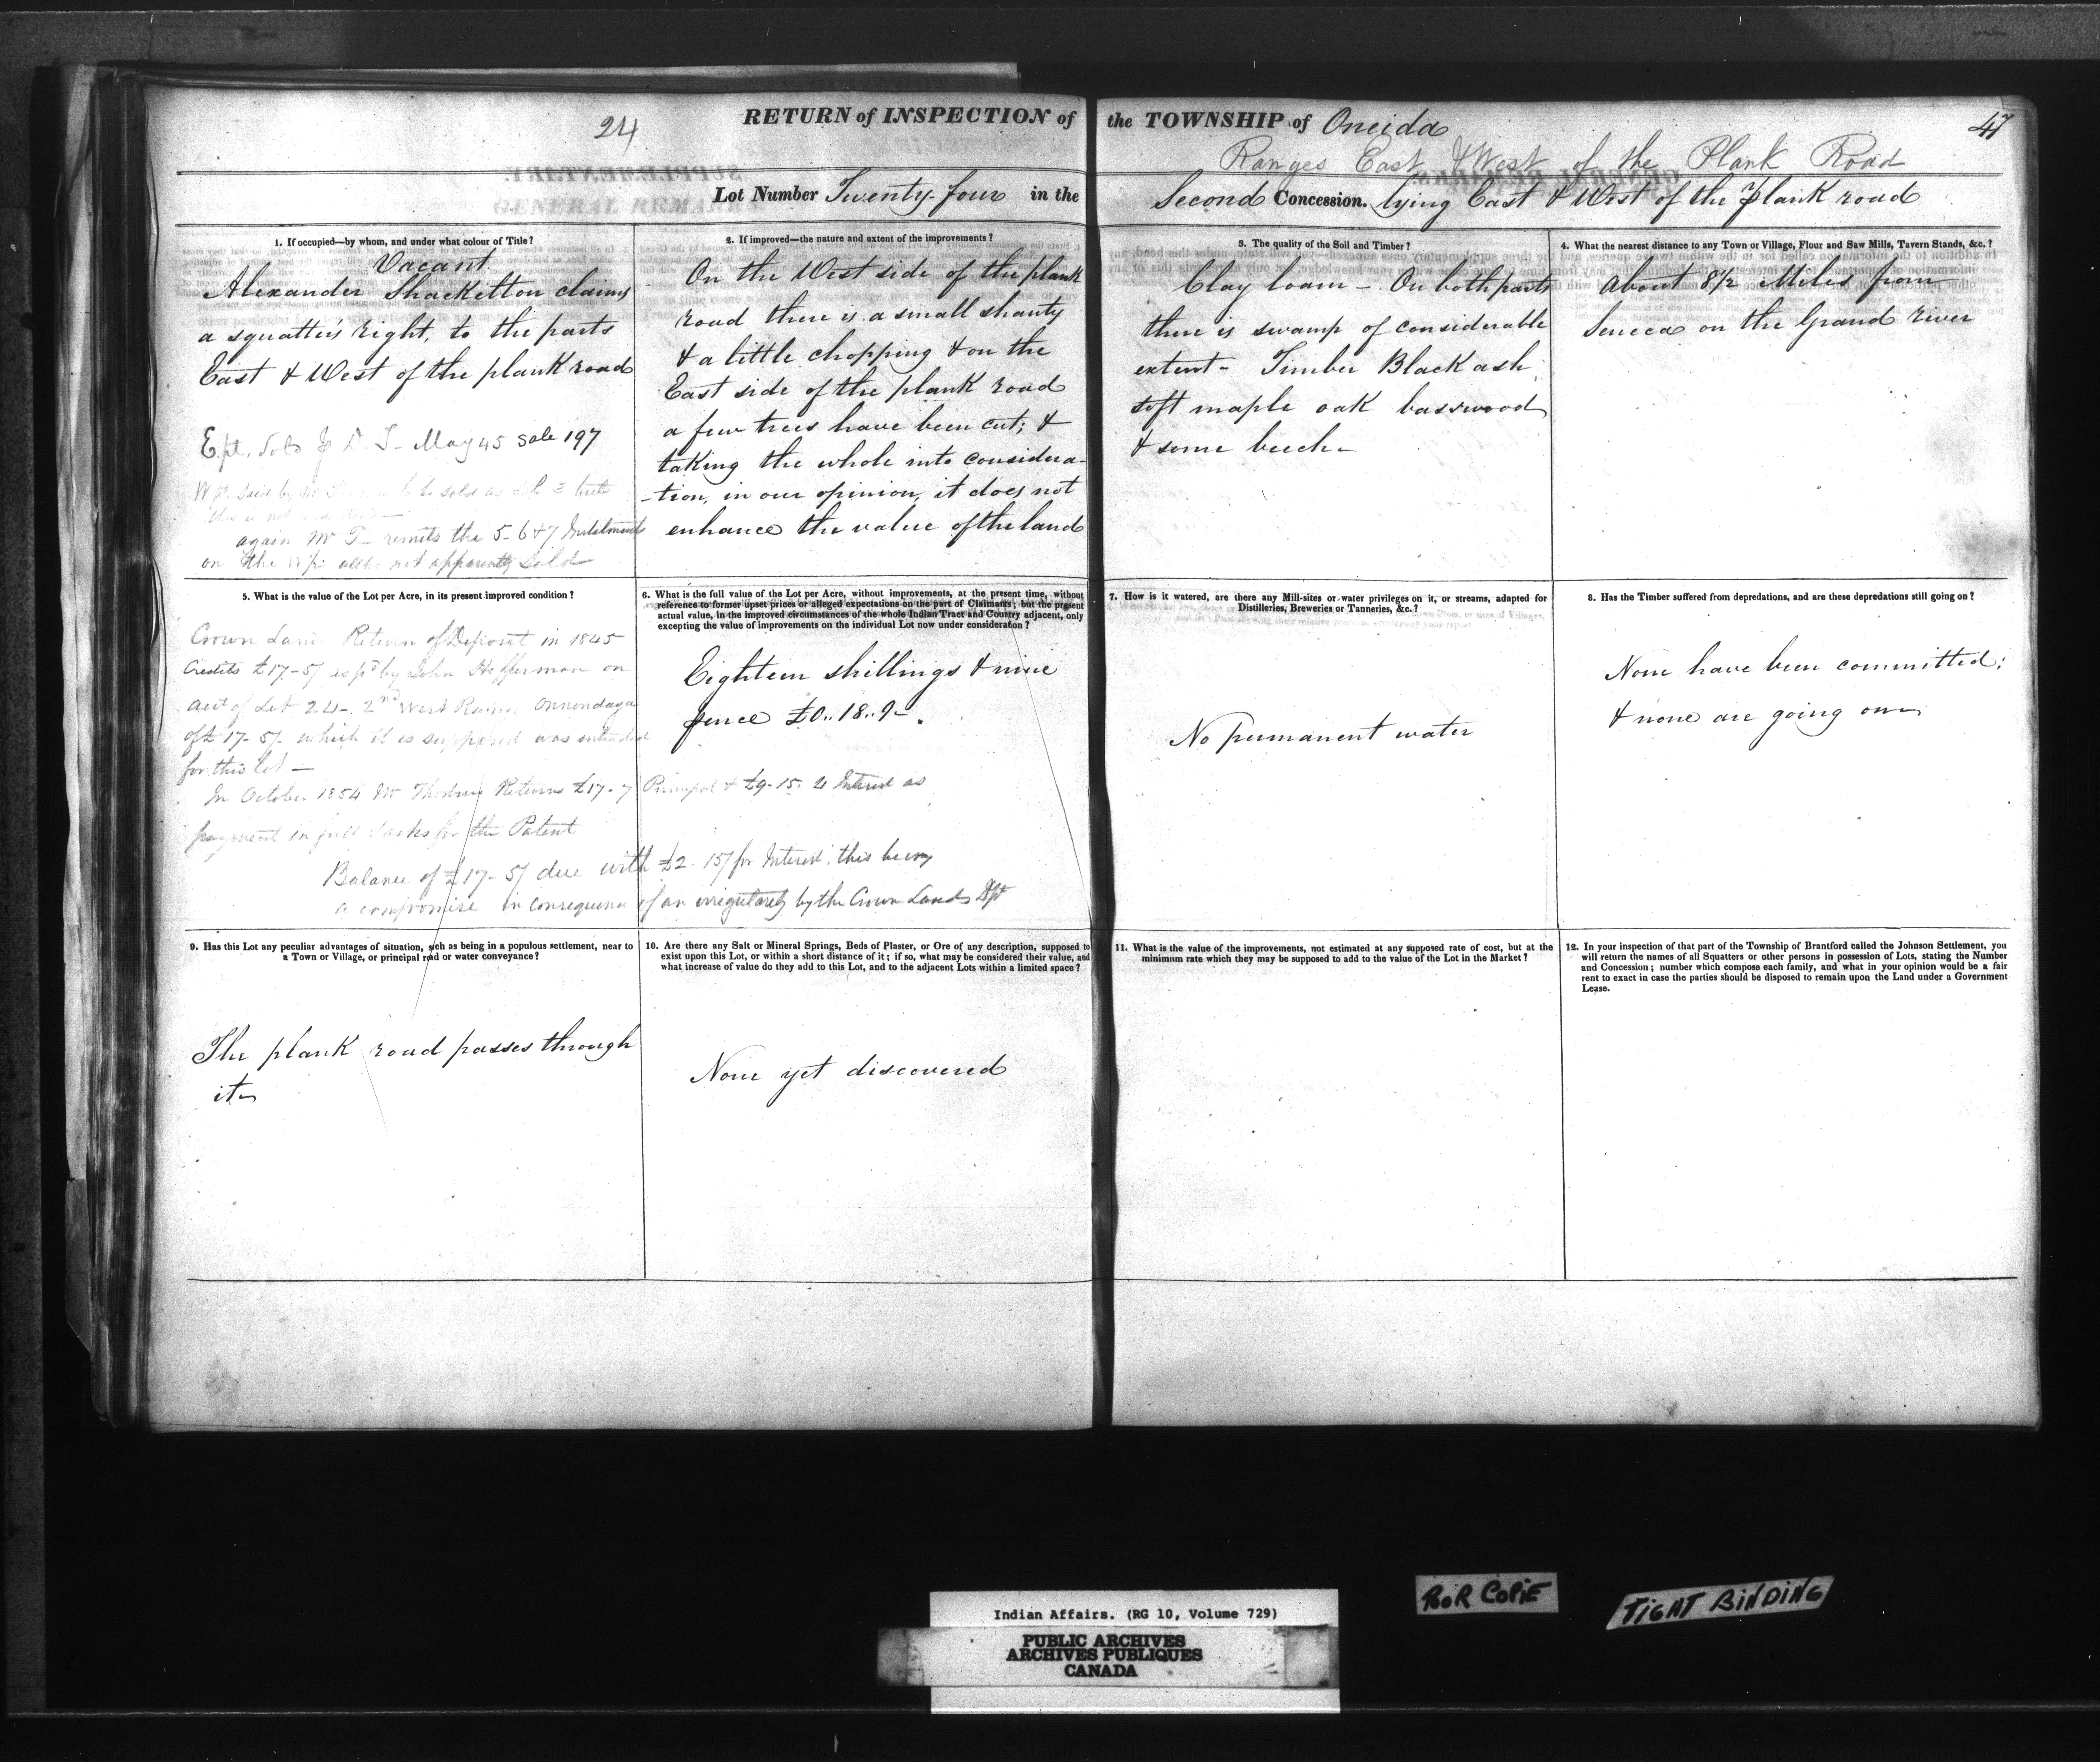 24
RETURN of INSPECTION of the TOWNSHIP of Oneida
47
Ranges East & West of the Plank Road
Lot Number Twenty-four in the Second Concession. lying East & West of the plank road
1. If occupied—by whom, and under what colour of Title?
Vacant.
Alexander Shackelton claims
a squatter's right, to the parts
East & West of the plank road
E.pt. Sold J. T. May 45 Sale 197
again Mr T— remits the 5-6&7 Instalments
on the W pt. not apparently Sold
2. If improved—the nature and extent of the improvements?
On the West side of the plank
road there is a small shanty
& a little chopping & on the
East side of the plank road
a few trees have been cut; &
taking the whole into considera-
-tion, in our opinion, it does not
enhance the value of the land
3. The quality of the Soil and Timber?
Clay loam - On both parts
there is swamp of considerable
extent - Timber Black ash
soft maple oak basswood
& some beech
4. What the nearest distance to any Town or Village, Flour and Saw Mills, Tavern Stands, &c.?
About 8½ Miles from
Seneca on the Grand River
5. What is the value of the Lot per Acre, in its present improved condition?
Crown Land Return of Deposit in 1845
Credits £17-5/ as pd by John Hefferman on
acct of Lot 24- 2nd West Range Onnondaga
of £17-5/- which it is supposed was intended
for this lot —
In October 1854 Mr Thorburn Returns £17-7 Principal & £9-15- Interest as
payment in full & asks for the Patent
Balance of £17-5/ due with £2-15/ for Interest. this being
a compromise in consequence of an irregularity by the Crown Lands Dpt
6. What is the full value of the Lot per Acre, without improvements, at the present time, without
reference to former upset prices or alleged expectations on the part of Claimants; but the present
actual value, in the improved circumstances of the whole Indian Tract and Country adjacent, only
excepting the value of improvements on the individual Lot now under consideration?
Eighteen shillings & nine
pence £0..18..9-
7. How is it watered, are there any Mill-sites or water privileges on it, or streams, adapted for
Distilleries, Breweries or Tanneries, &c.?
No permanent water
8. Has the Timber suffered from depredations, and are these depredations still going on?
None have been committed;
& none are going on
9. Has this Lot any peculiar advantages of situation, such as being in a populous settlement, near to
a Town or Village, or principal road or water conveyance?
The plank road passes through
it
10. Are there any Salt or Mineral Springs, Beds of Plaster, or Ore of any description, supposed to
exist upon this Lot, or within a short distance of it; if so, what may be considered their value, and
what increase of value do they add to this Lot, and to the adjacent Lots within a limited space?
None yet discovered
11. What is the value of the improvements, not estimated at any supposed rate of cost, but at the
minimum rate which they may be supposed to add to the value of the Lot in the Market?
12. In your inspection of that part of the Township of Brantford called the Johnson Settlement, you
will return the names of all Squatters or other persons in possession of Lots, stating the Number
and Concession; number which compose each family, and what in your opinion would be a fair
rent to exact in case the parties should be disposed to remain upon the Land under a Government
Lease.
Indian Affairs. (RG 10, Volume 729)
PUBLIC ARCHIVES
ARCHIVES PUBLIQUES
CANADA
POOR COPIE
TIGHT BINDING